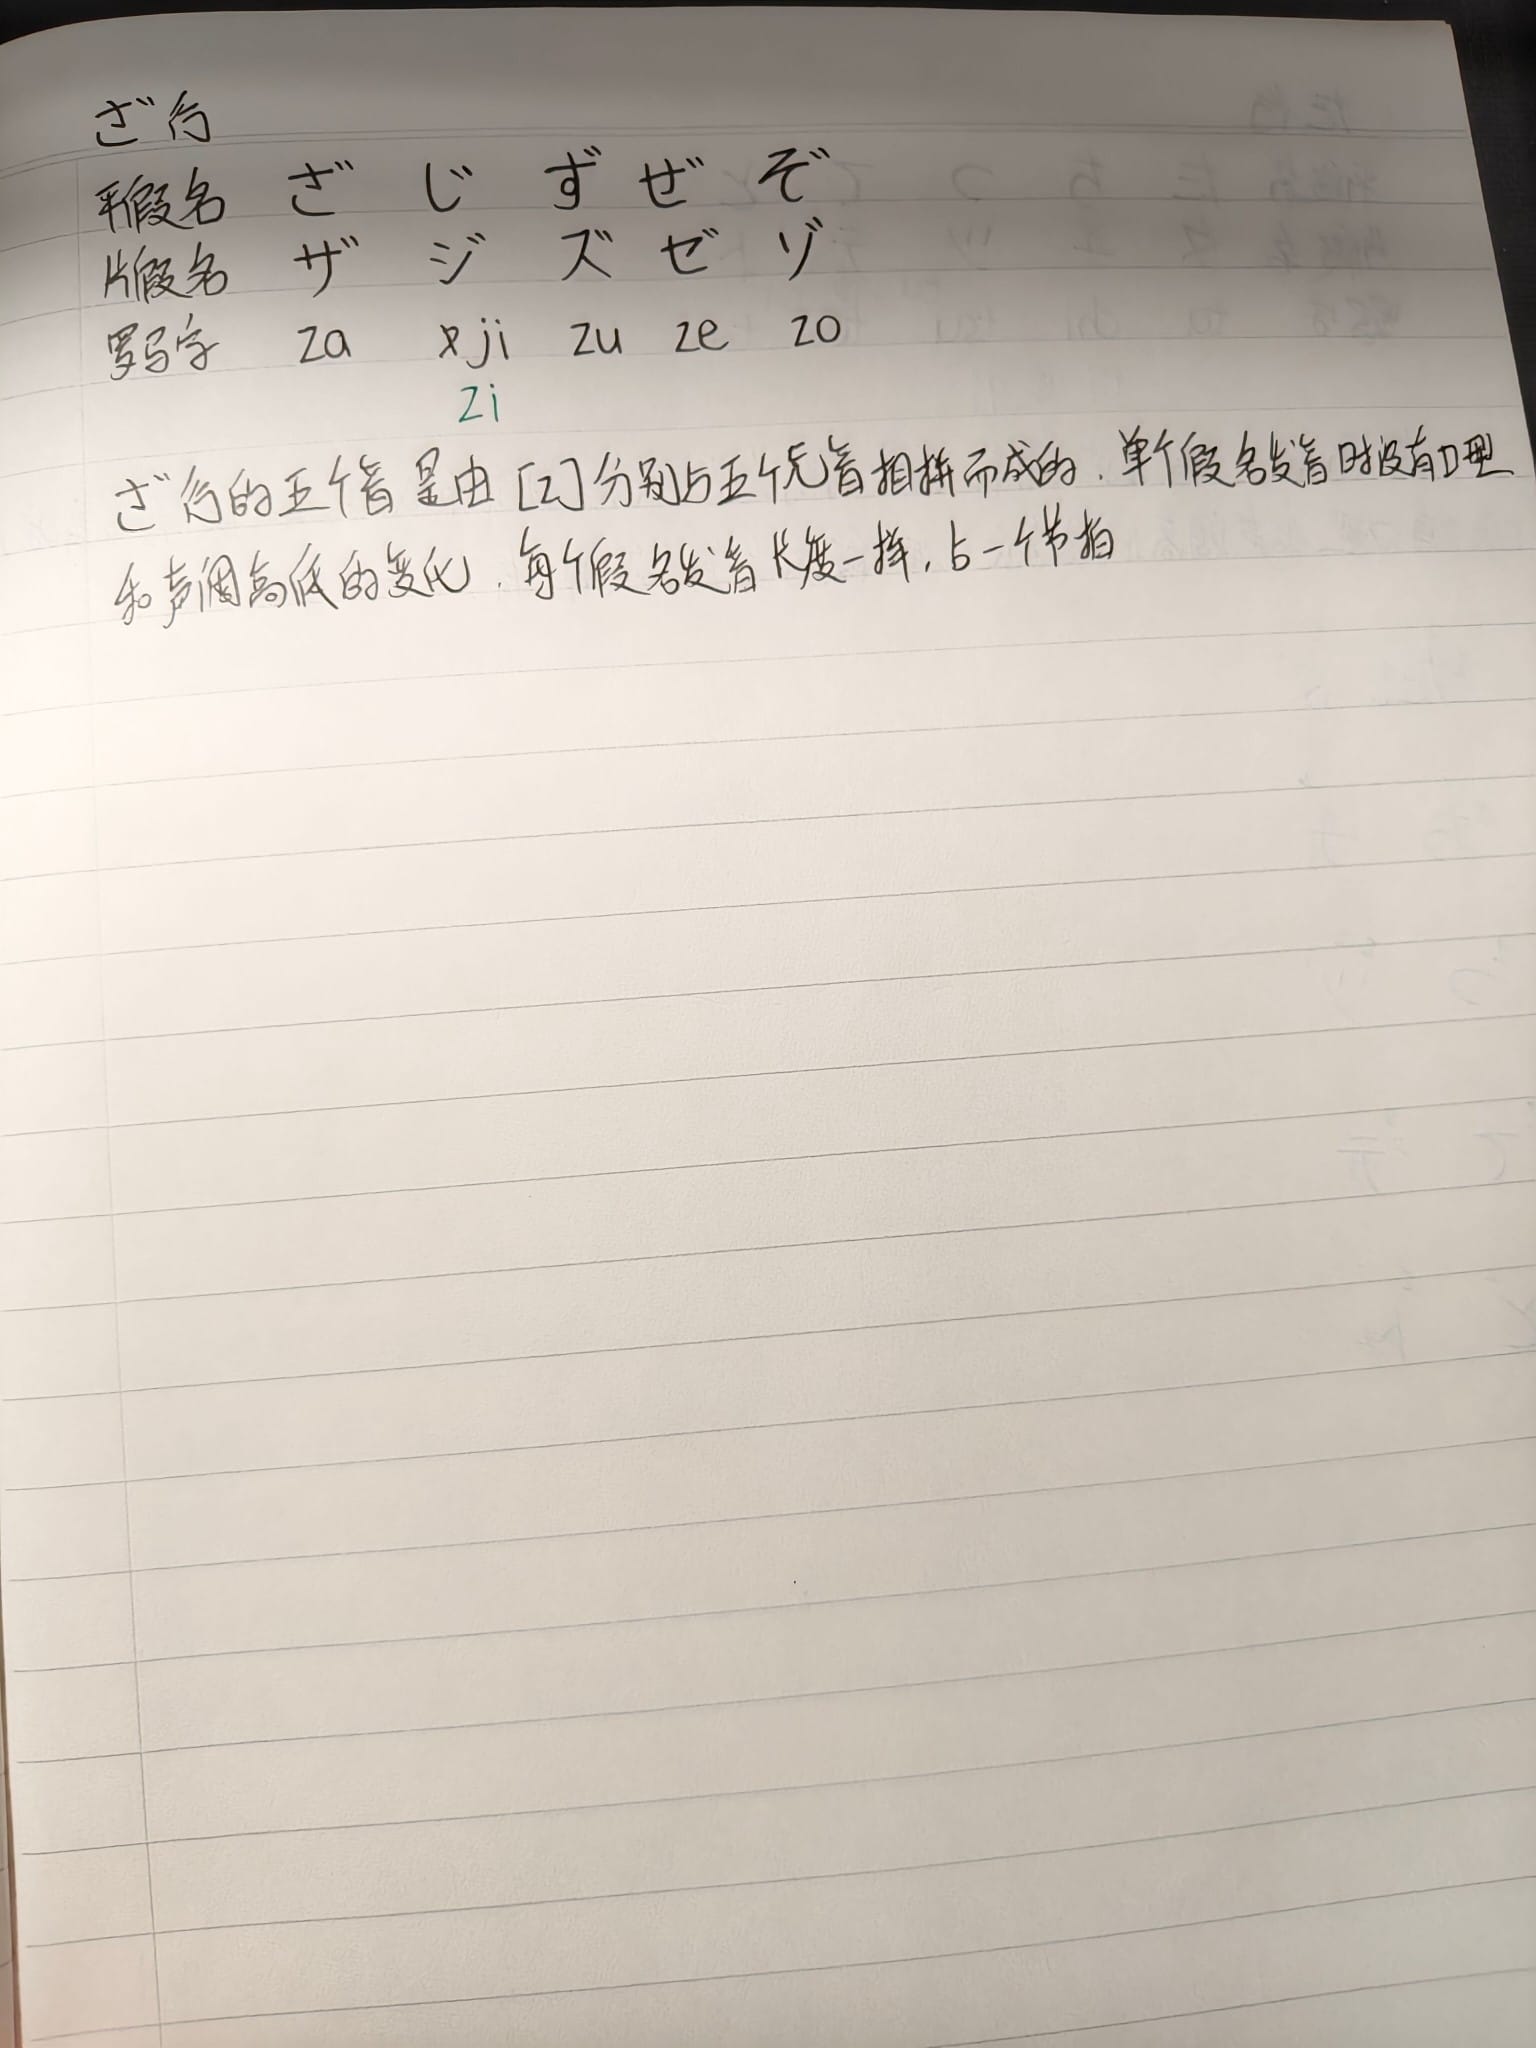 ざ行
平假名 ざ じ ず ぜ ぞ
片假名 ザ ジ ズ ゼ ゾ
罗马字 za ji zu ze zo
zi
ざ行的五个音是由[z]分别与五个元音相拼而成的.单个假名发音时没有口型
和声调高低的变化.每个假名发音长度一样,占一个节拍